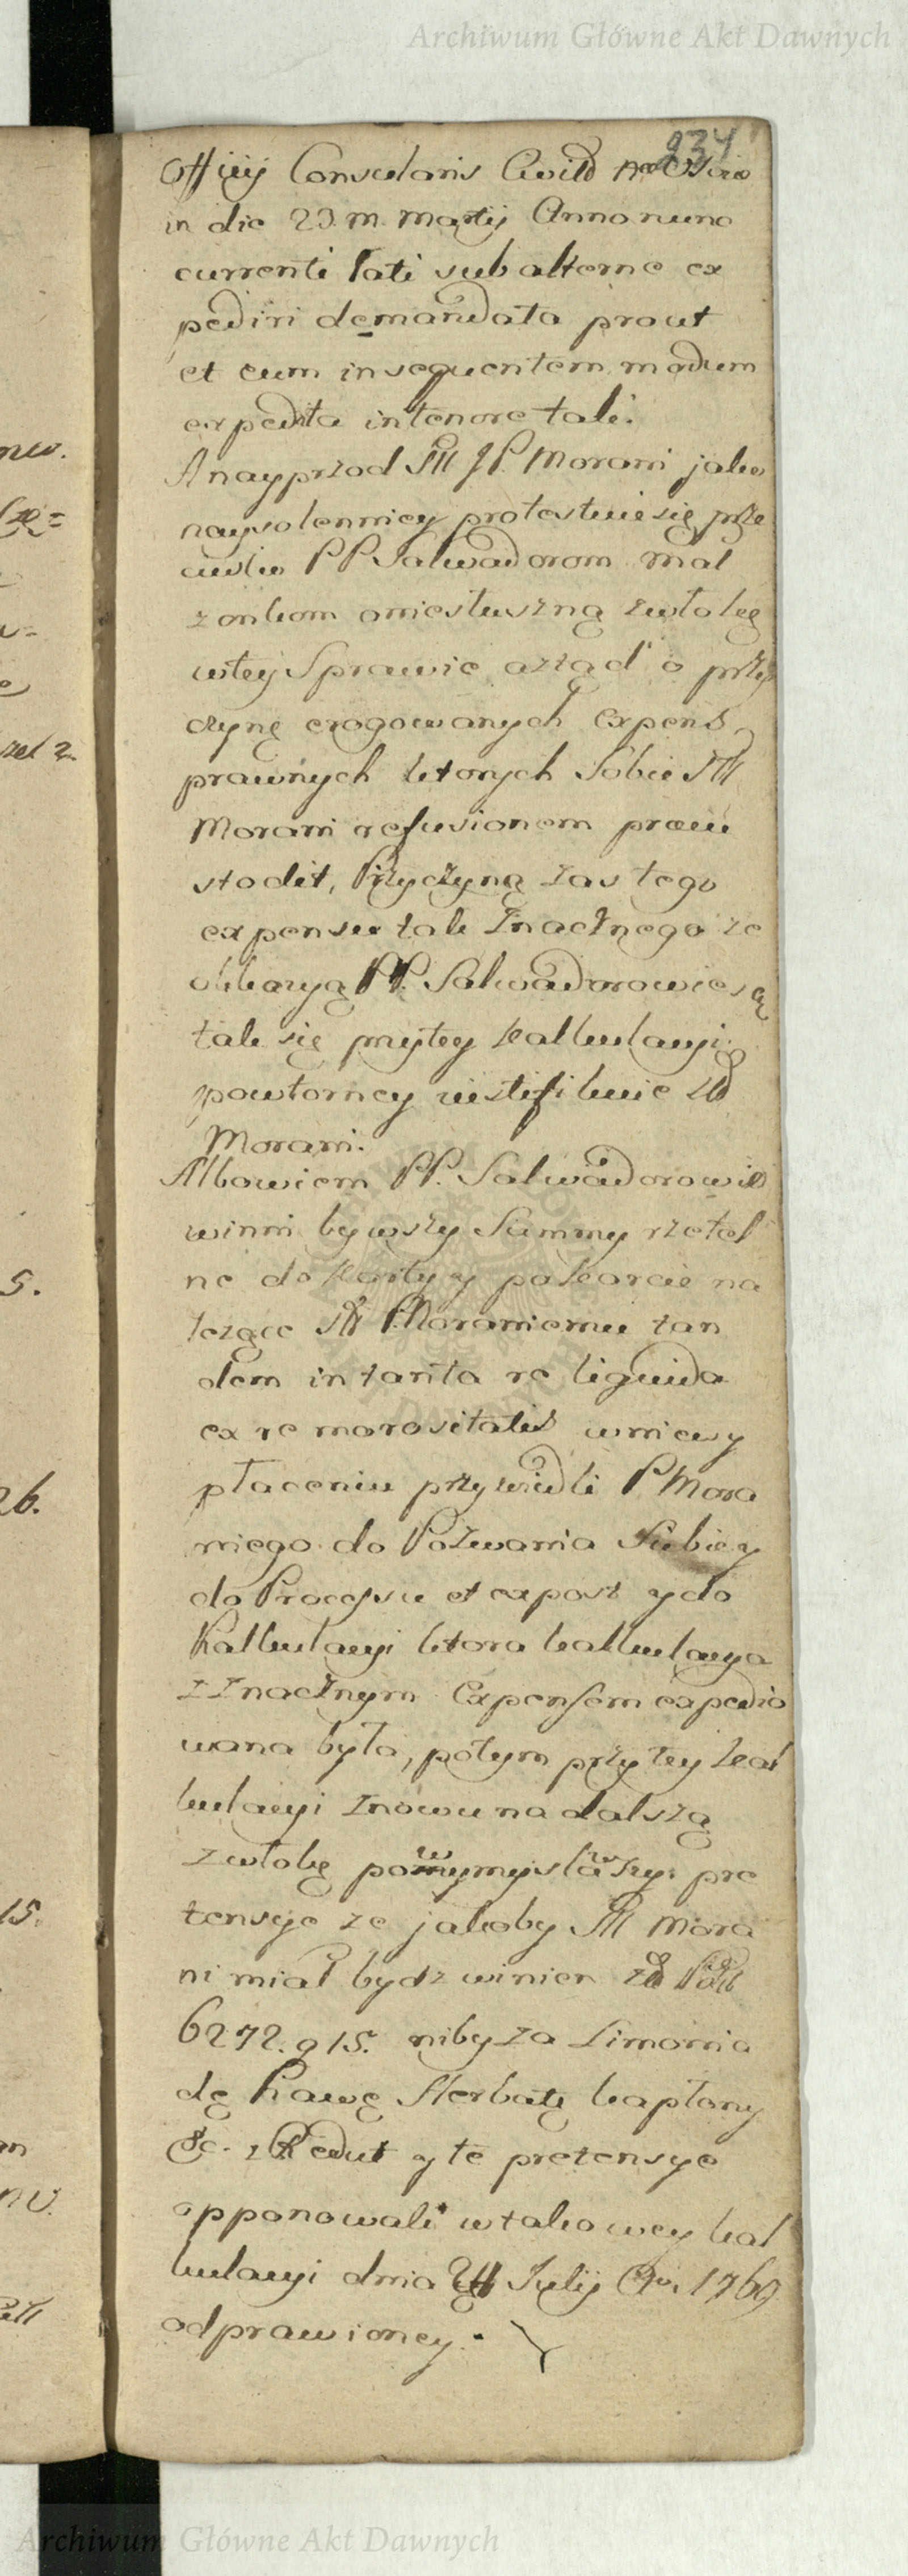 Archiwum Główne Akt Dawnych
934
Officij Consularis Civild
in die 23 m. Martij Anno nunc
currenti lati subalterne ex
pediri demandata prout
et eum in sequentem modum
expedita in tenore tali.
A nayprzod JM J P. Morani jako
naysolenniey protestuie się prze
ciwko PP Salwadorom Mał
zonkom o niesłuszną zwłokę
wtey Sprawie a ztąd o przy
czynę erogowanych Expens
prawnych ktorych Sobie JM
Morani refusionem prcu
stodit, Przyczyną zas tego
expensu tak Znacznego ze
okkazyą PP. Salwadorowie są
tak się przytey kalkulacyi
powtorney iustifikuie JP
Morani.
Albowiem PP. Salwadorowie
winni bywszy Summy rzetel
ne do Karty y po karcie na
lezące JP P. Moraniemu tan
dem in tanta re liquida
ex re morositatis wnicy
płaceniu przywiedli P Mora
niego do Pozwania Siebie y
do Processu et expost y do
Kalkulacyi ktora kalkulacya
z Znacznym Expensem expedio
wana była, potym przy tey kal
kulacyi znowu na dalszą
zwłokę powymyslawszy pre
tensye ze jakoby JM Mora
ni miał bydz winien
6272. g 15. niby za Limonia
dę Kawę Herbatę kapłony
&c. z Redut y te pretensye
opponowali w takowey kal
kulacyi dnia Julij Ao. 1769
odprawioney.
nw.
5.
26.
15.
Archiwum Główne Akt Dawnych